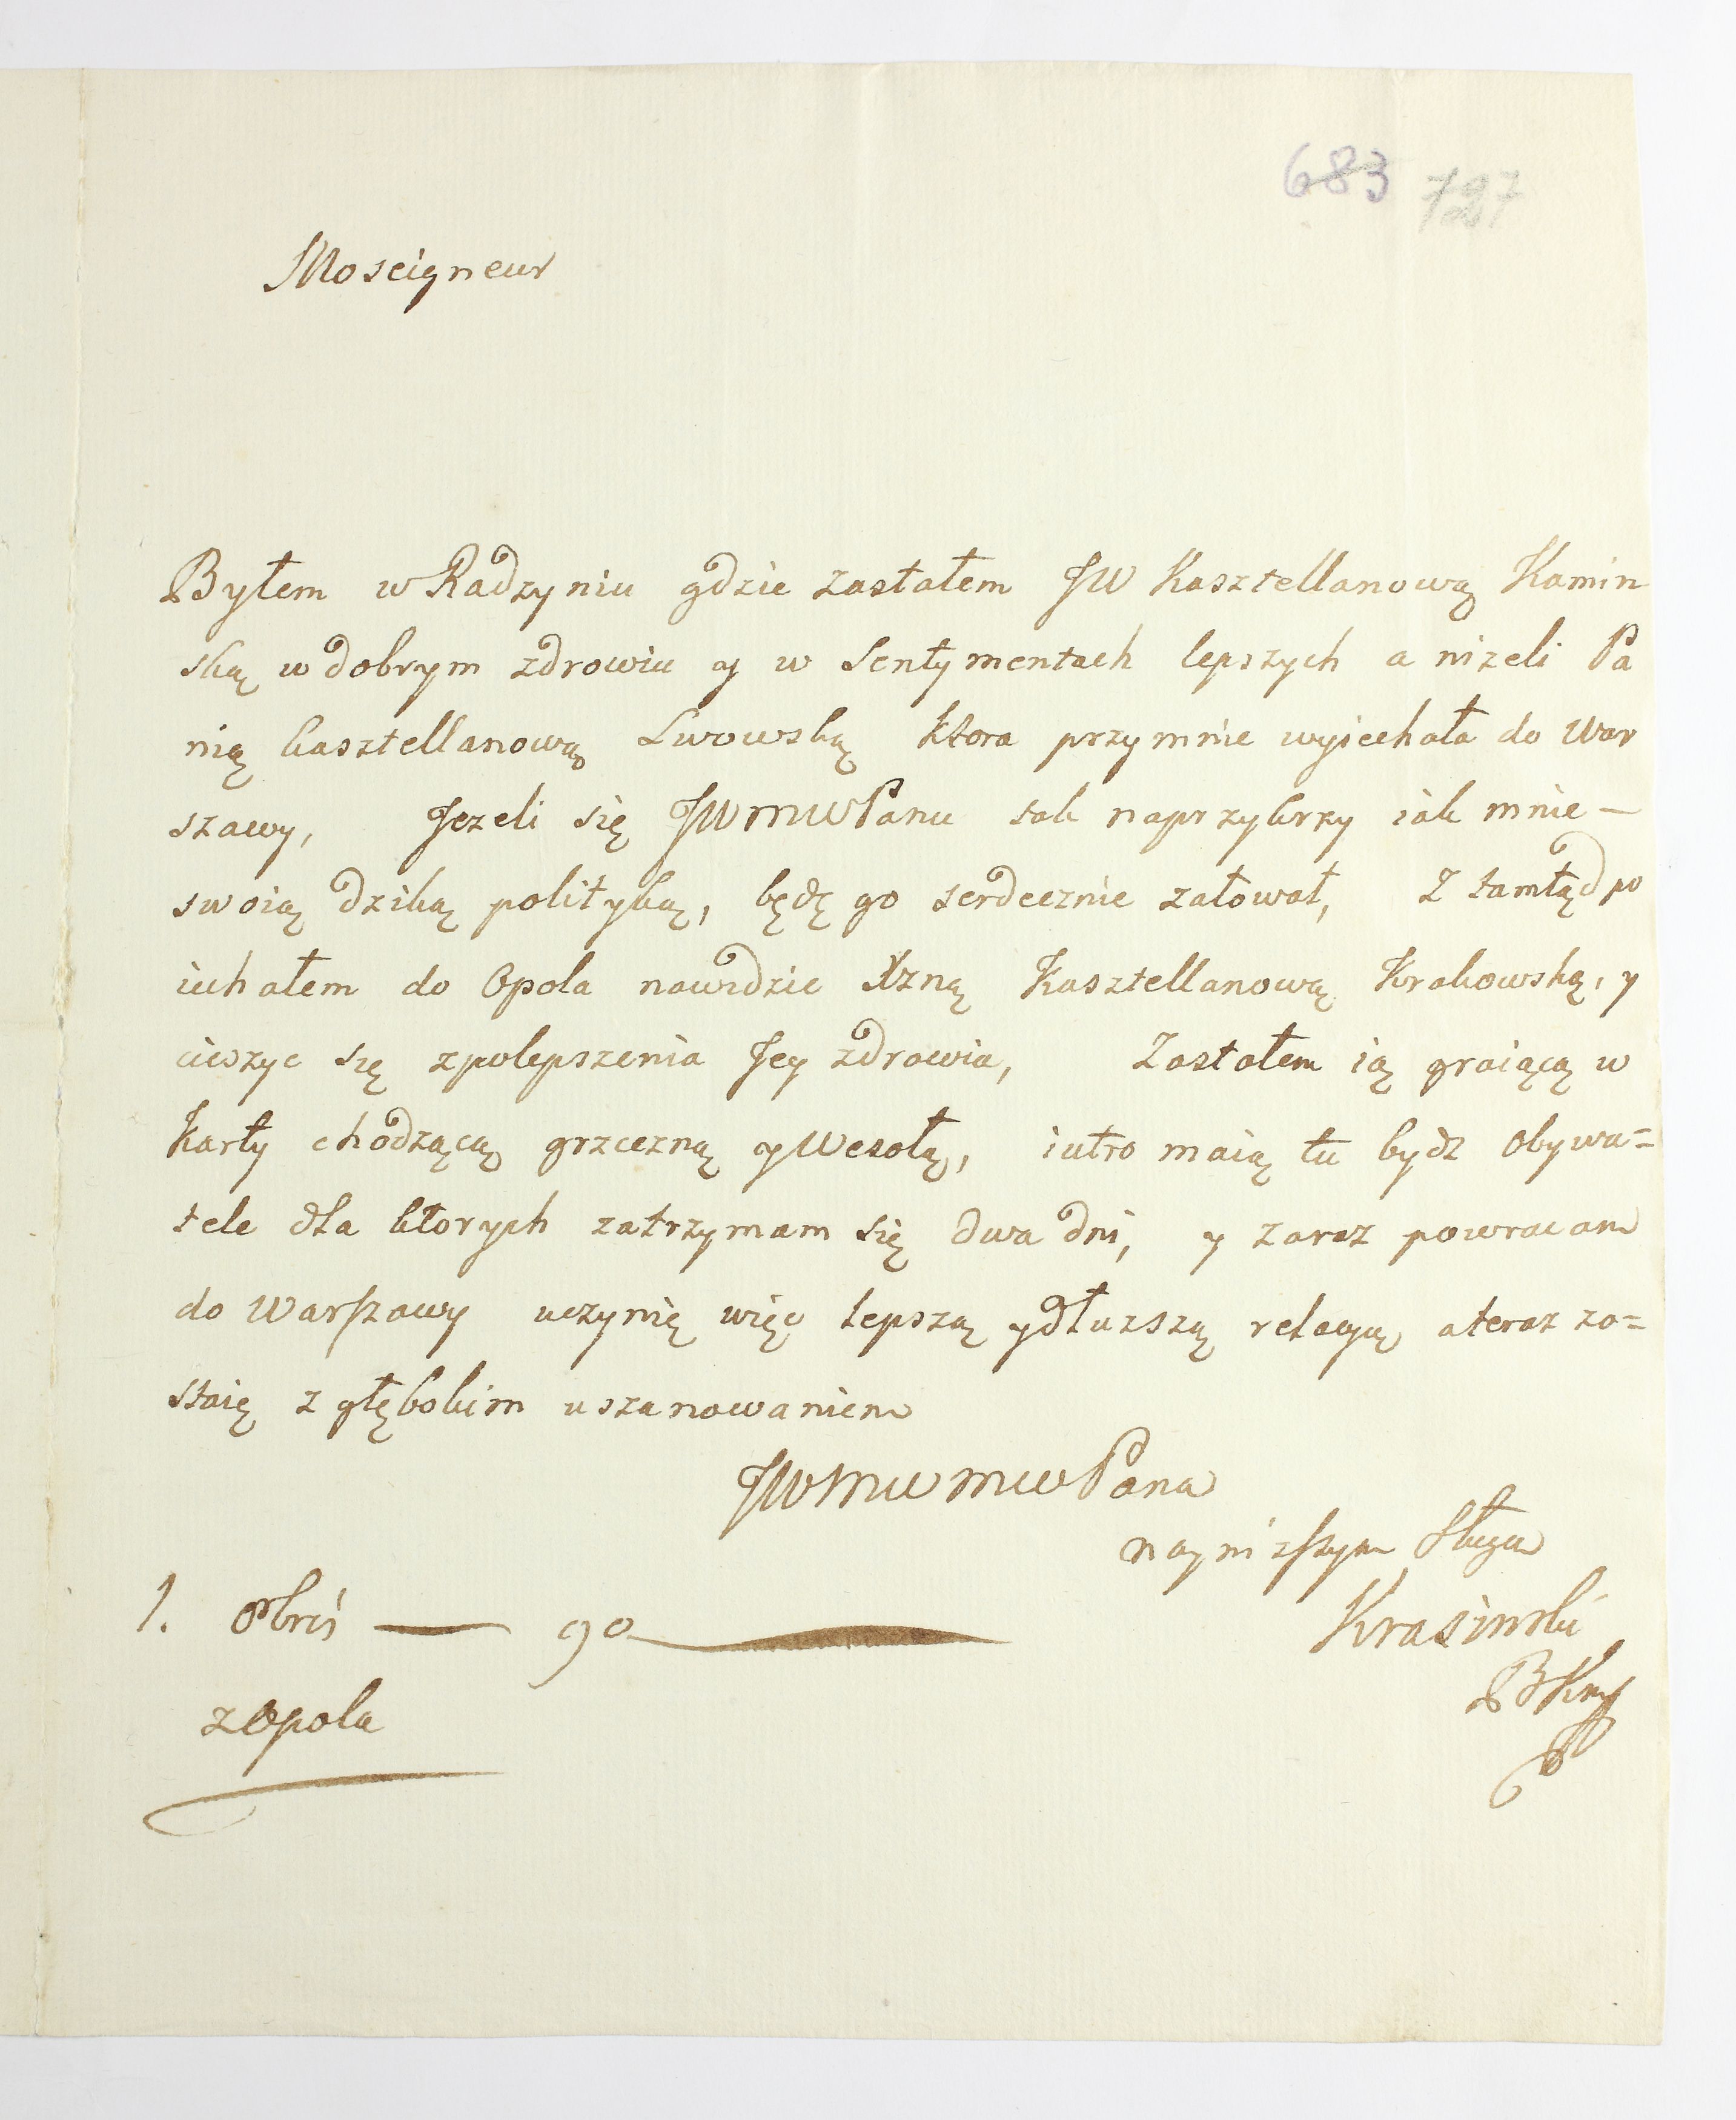 683 727
Moseigneur
Byłem w Radzyniu gdzie zastałem JW Kasztellanową Kamin
ską w dobrym zdrowiu y w Sentymentach lepszych a nizeli Pa
nią kasztellanową Lwowską ktora przymnie wyiechała do War
szawy, Jezeli się JWMWPanu tak naprzykrzy iak mnie —
swoią dziką polityką, będę go serdecznie załował, Z tamtąd po
iechałem do Opola nawidzic Xzną Kasztellanową Krakowską, y
cieszyc się zpolepszenia Jey zdrowia, Zastałem ią graiącą w
karty chodzącą grzeczną y Wesołą, iutro maią tu bydz Obywa=
tele dla ktorych zatrzymam się dwa dni, y zaraz powracam
do Warszawy uczynię więc lepszą y dłuzszą relacyą a teraz zo=
staię z głębokim uszanowaniem
JWMW mwPana
nayniższym Sługą
1. 8bris — 90
Krasinski
zOpola
BKmf